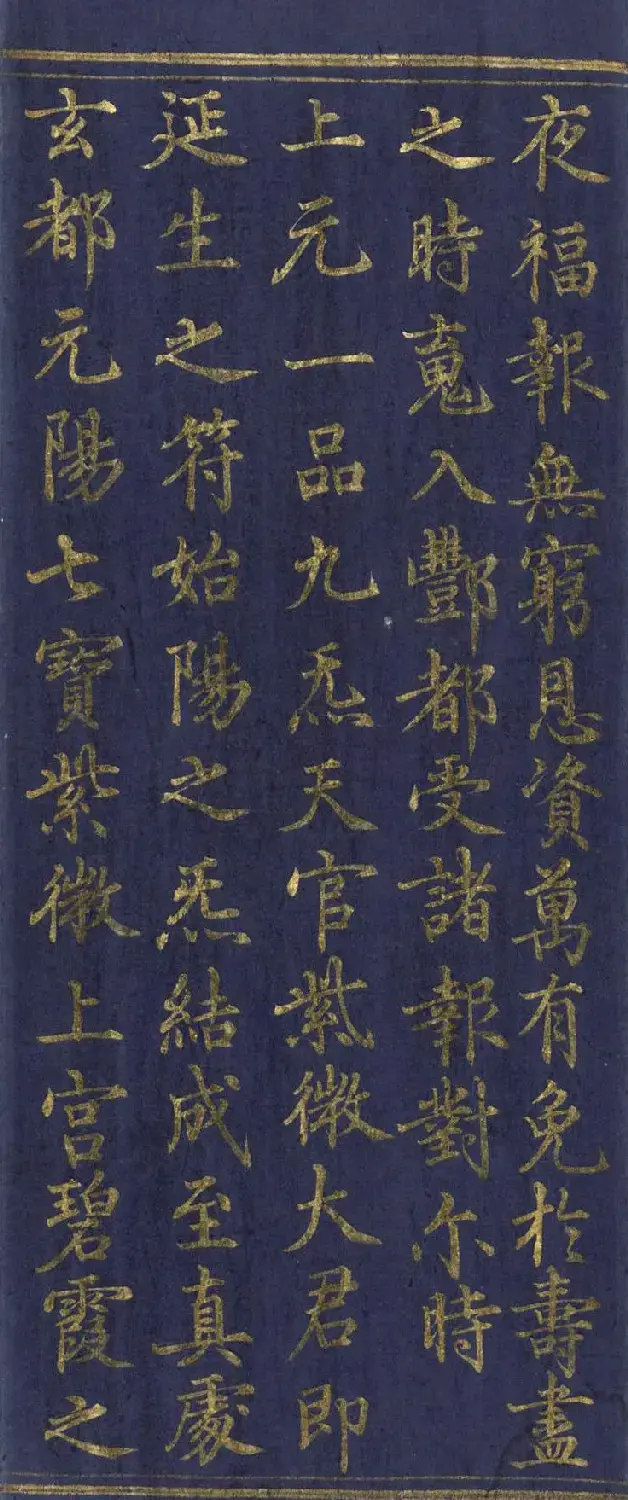 夜福報無窮恩資萬有免於壽盡
之時䰟入酆都受諸報對尒時
上元一品九炁天官紫微大君即
延生之符始陽之炁結成至真處
玄都元陽七寶紫微上宮碧霞之